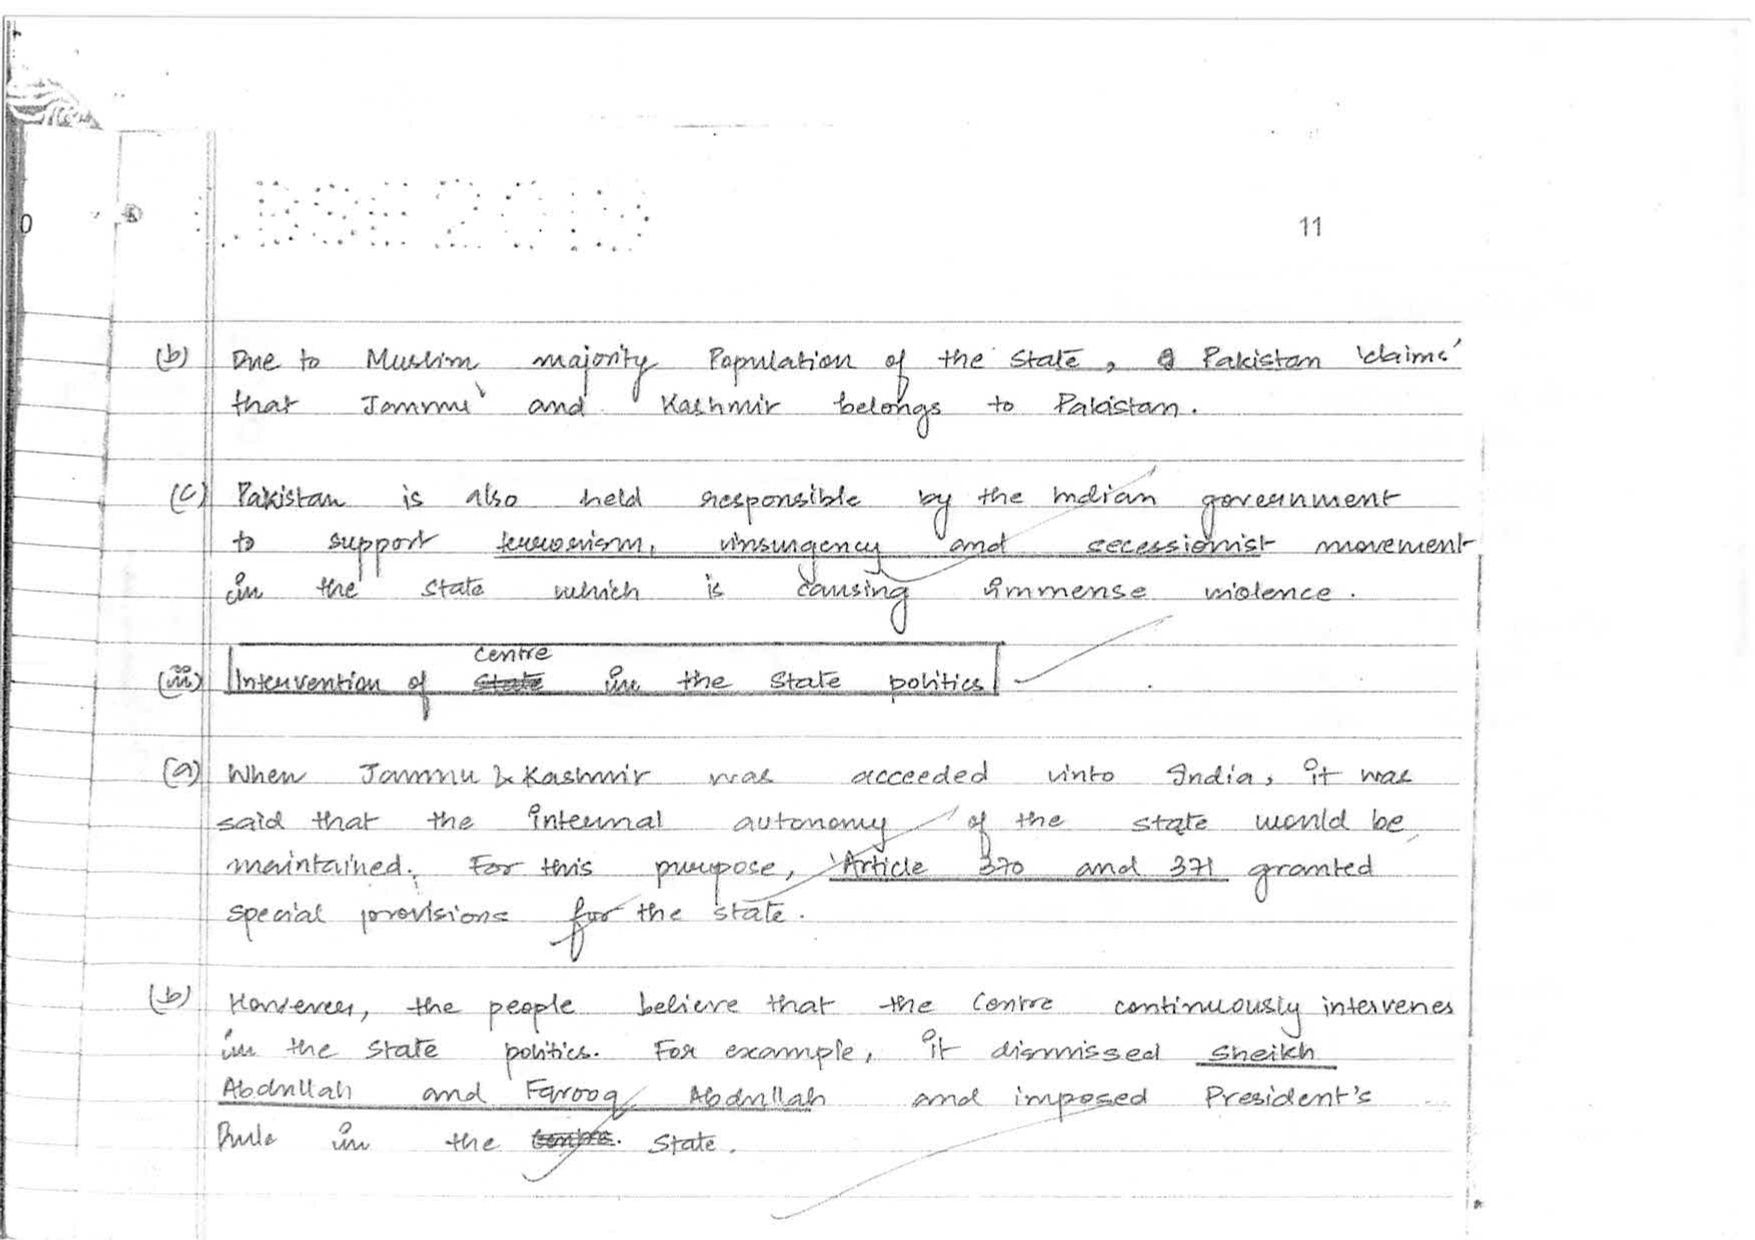 BSE 2019
11
(b) Due to Muslim majority Population of the state, Pakistan 'claims'
that Jammu and Kashmir belongs to Pakistan.
(c) Pakistan is also held responsible by the Indian government
to support terrorism, insurgency and secessionist movement
in the state which is causing immense violence.
centre
(iii) Intervention of state in the state politics
(a) When Jammu & Kashmir was acceeded into India, it was
said that the internal autonomy of the state would be
maintained. For this purpose, 'Article 370 and 371 granted
special provisions for the state.
(b) However, the people believe that the Centre continuously intervenes
in the state politics. For example, it dismissed Sheikh
Abdullah and Farooq Abdullah and imposed President's
Rule in the centre. State.